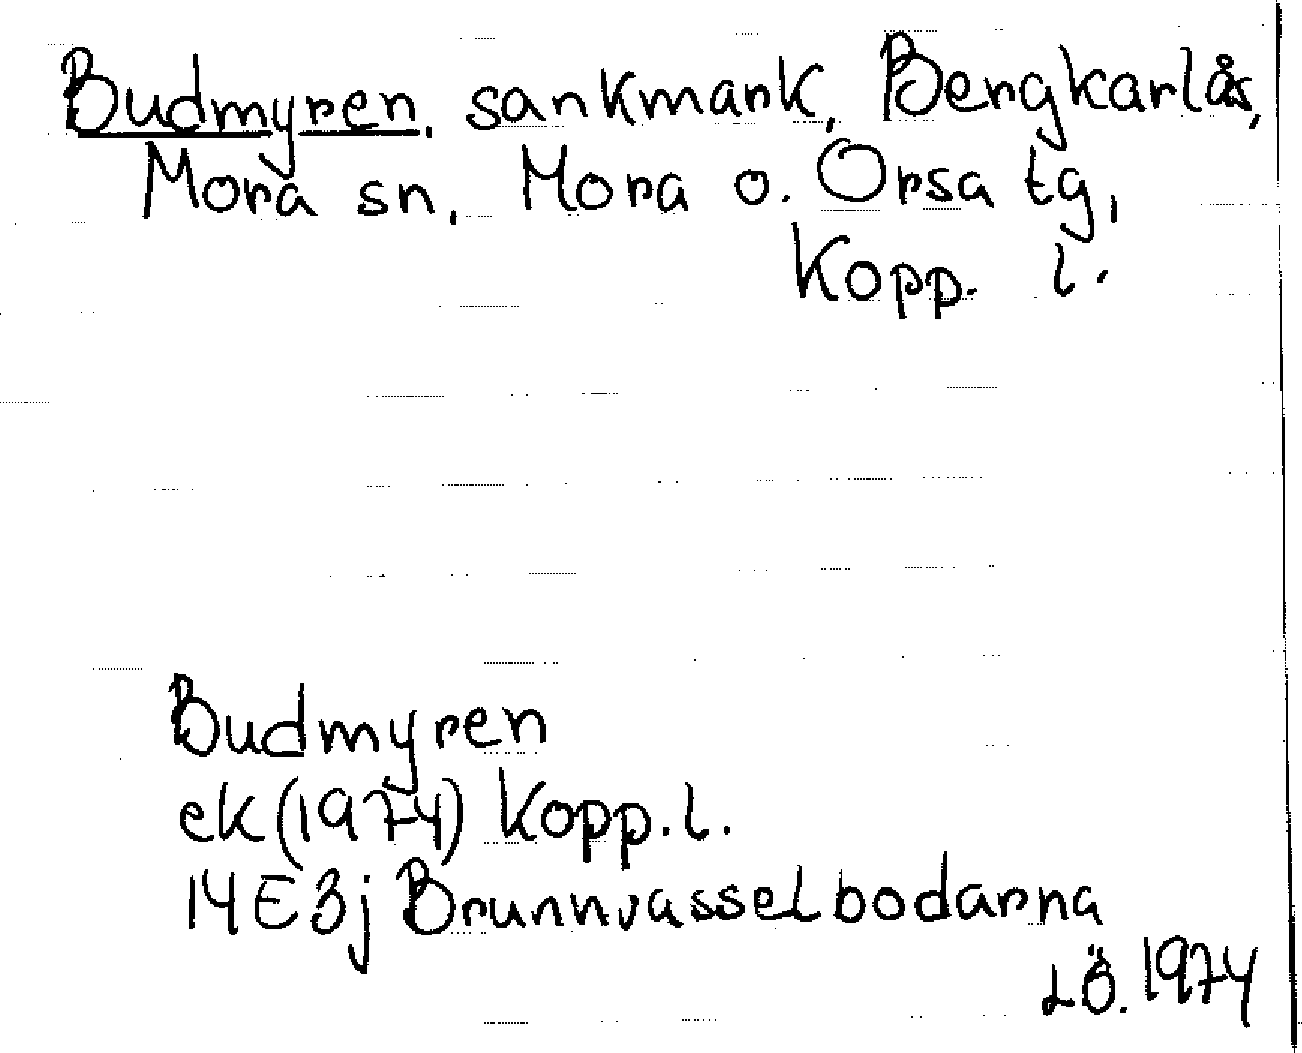 Budmyren, sankmark, Bengkarlås,
Mora sn, Mora o. Orsa tg,
Kopp. l.
Budmyren
ek (1974) Kopp. l.
14E3j Brunnvasselbodarna
LÖ. 1974